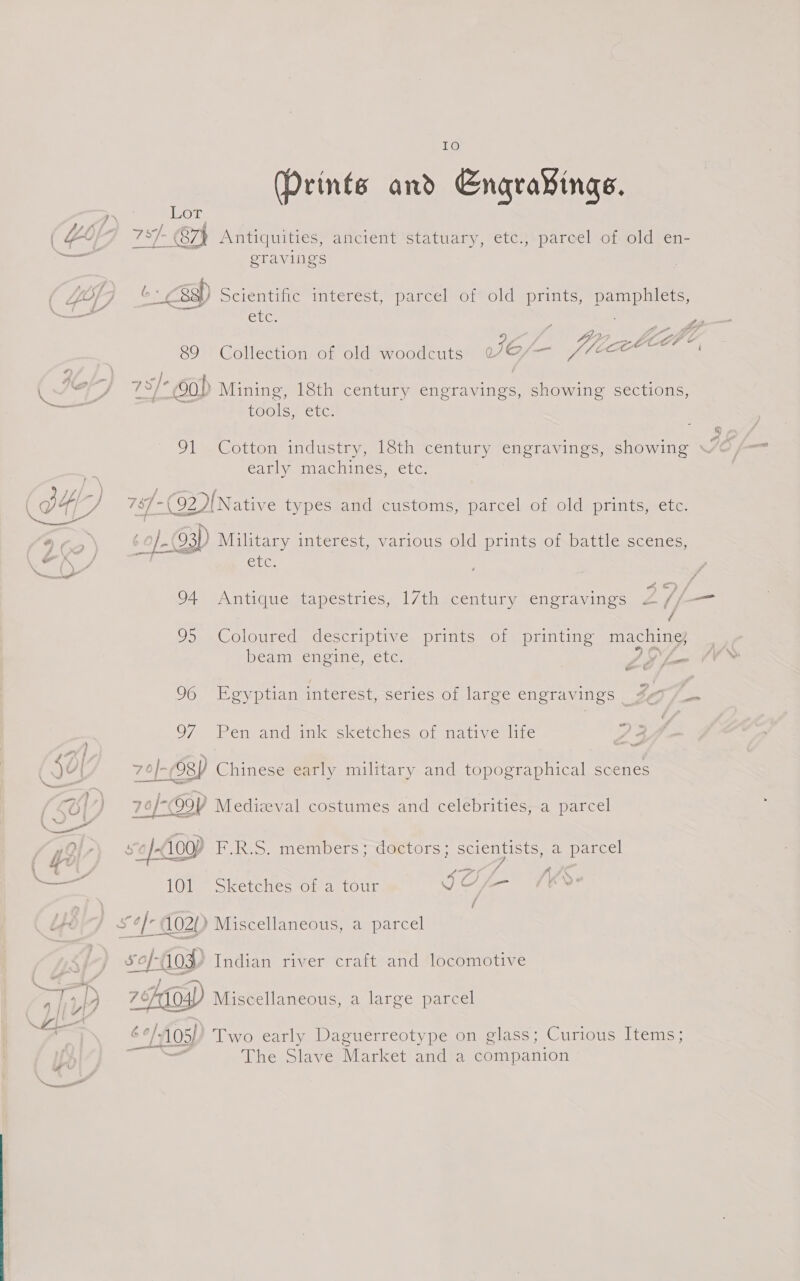 10
Prints and Engravings.
LOT
75/- 87 Antiquities, ancient statuary, etc., parcel of old en-
gravings
88 Scientific interest, parcel of old prints, pamphlets,
etc.
89 Collection of old woodcuts
75/- 90 Mining, 18th century engravings, showing sections,
tools, etc.
91 Cotton industry, 18th century engravings, showing
early machines, etc.
75/- 92 Native types and customs, parcel of old prints, etc.
60/- 93 Military interest, various old prints of battle scenes,
etc.
94 Antique tapestries, 17th century engravings
95 Coloured descriptive prints of printing machine,
beam engine, etc.
96 Egyptian interest, series of large engravings
97 Pen and ink sketches of native life
70/- 98 Chinese early military and topographical scenes
70/- 99 Mediæval costumes and celebrities, a parcel
50/- 100 F.R.S. members; doctors; scientists, a parcel
101 Sketches of a tour
50/- 102 Miscellaneous, a parcel
50/- 103 Indian river craft and locomotive
70/- 104 Miscellaneous, a large parcel
60/- 105 Two early Daguerreotype on glass; Curious Items;
The Slave Market and a companion